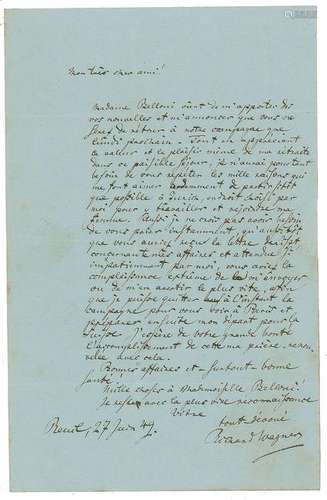 Mon très cher ami!
Madame Belloni vient de m'apporter des
vos nouvelles et m'annoncer que vous ne
ferez de retour à notre campagne que
lundi prochain. Tout en appréciant
la valeur et le plaisir même de ma retraite
dans ce paisible séjour, je n'aurai pourtant
besoin de vous répéter les mille raisons qui
me font aimer de partir sitôt
que possible à Zurich, endroit choisi par
moi pour y travailler et rejoindre ma
femme. Aussi je ne crois pas avoir besoin
de vous prier instamment, qu'aussitôt
que vous auriez reçu la lettre
concernante mes affaires et attendue si
impatiemment par moi, vous ayez la
complaisance extrême de me l'envoyer
ou de m'en avertir le plus vite, afin
que je puisse quitter à l'instant la
campagne pour vous voir à Paris et
préparer ensuite mon départ pour la
Suisse. J'espère de votre grande bonté
l'accomplissement de cette ma prière, renou-
velée avec cela.
Bonnes affaires et surtout bonne
santé!
Mille choses à Mademoiselle Belloni!
Je reste avec la plus vive reconnaissance
Votre
tout dévoué
Richard Wagner
Rueil, 27 Juin 49.